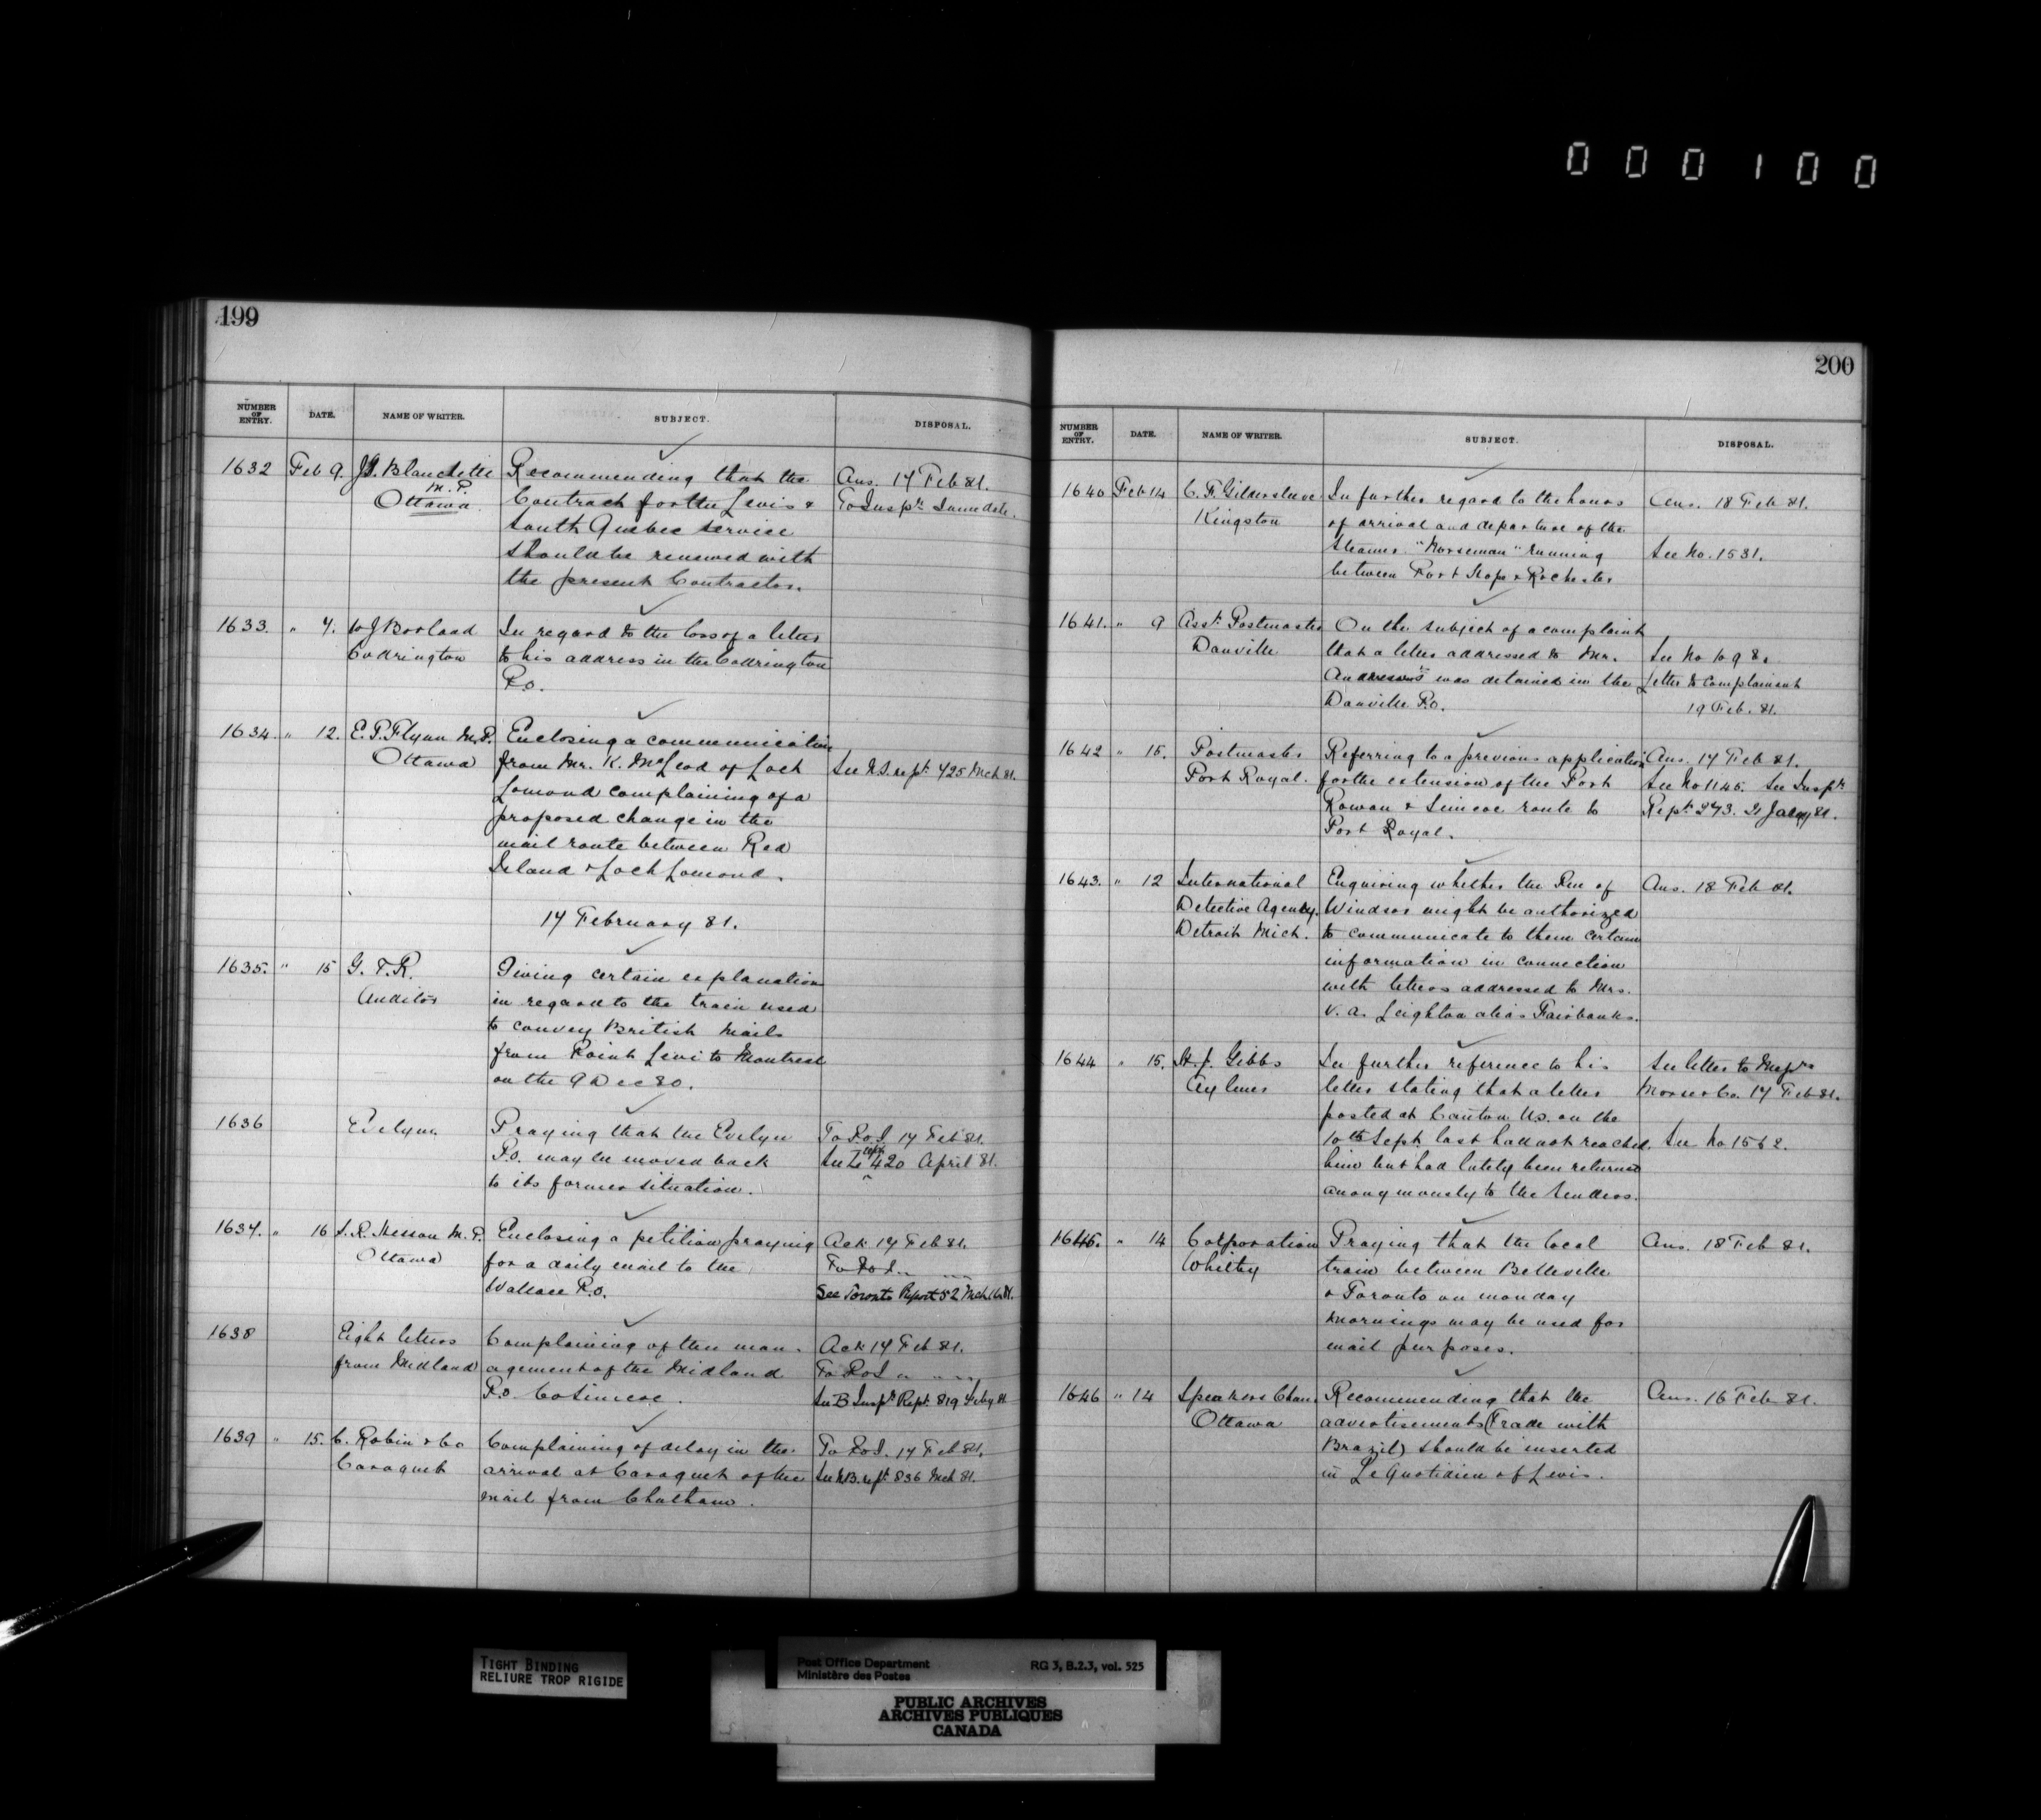 000100
199
NUMBER OF ENTRY. DATE. NAME OF WRITER. SUBJECT. DISPOSAL.
1632 Feb 9. Blanchette Recommending that the Ans. 17 Feb 81.
M.P.
Ottawa Contract for the Levis & To Inspr. Same date.
South Quebec Service
should be renewed with
the present Contractor.
1633. " 7. W J Borland In regard to the loss of a letter
Codrington to his address in the Codrington
P.O.
1634. " 12. E. P. Flynn M.P. Enclosing a communication
Ottawa from Mr. K. McLeod of Loch See N.S. rept. 425 Mch 81.
Lomond complaining of a
proposed change in the
mail route between Red
Island & Loch Lomond.
17 February 81.
1635. " 15 G. T. R. Giving certain explanations
Auditor in regard to the train used
to convey British Mails
from Point Levi to Montreal
on the 9 Dec 80.
1636 Evelyn Praying that the Evelyn To P.O.I 17 Feb 81.
P.O. may be moved back See L rept 420 April 81.
to its former situation.
1637. " 16 S. R. Hesson M.P. Enclosing a petition praying Ack 17 Feb 81.
Ottawa for a daily mail to the To P.O.I " " "
Wallace P.O. See Toronto Report 52 Mch 81.
1638 Eight letters Complaining of the man- Ack 17 Feb 81.
from Midland agement of the Midland To P.O.I " " "
P.O. Co Simcoe. See B Inspr Rept. 819 Feby 81
1639 " 15. C. Robin & Co Complaining of delay in the To P.O.I. 17 Feb 81.
Caraquet arrival at Caraquet of the See N.B. rept. 836 Mch 81.
mail from Chatham.
200
NUMBER OF ENTRY. DATE. NAME OF WRITER. SUBJECT. DISPOSAL.
1640 Feb 14 C. F. Gildersleeve In further regard to the hours Ans. 18 Feb 81.
Kingston of arrival and departure of the
Steamer "Norseman" running See No. 1531.
between Port Hope & Rochester
1641. " 9 Asst. Postmaster On the subject of a complaint
Danville that a letter addressed to Mr. See No 1098.
was detained in the Letter to Complainant
Danville P.O. 19 Feb. 81.
1642 " 15. Postmaster Referring to a previous application Ans. 17 Feb 81.
Port Royal. for the extension of the Port See No 1145. See Inspr
Rowan & Simcoe route to Rept. 273. 21 Jany 81.
Port Royal.
1643. " 12 International Enquiring whether the P.M. of Ans. 18 Feb 81.
Detective Agency. Windsor might be authorized
Detroit Mich. to communicate to them certain
information in connection
with letters addressed to Mrs.
V. A. Leighton alias Fairbanks.
1644 " 15. H. J. Gibbs In further reference to his See letter to Messrs
Aylmer letter stating that a letter Morse & Co. 17 Feb 81.
posted at Canton U.S. on the
10th Sept. last had not reached See No 1562.
him but had lately been returned
anonymously to the Senders.
1645. " 14 Corporation Praying that the local Ans. 18 Feb 81.
Whitby train between Belleville
& Toronto on Monday
mornings may be used for
mail purposes.
1646 " 14 Speakers Cham. Recommending that the Ans. 16 Feb 81.
Ottawa advertisements (Trade with
Brazil) should be inserted
in Le Quotidien of Levis.
TIGHT BINDING
RELIURE TROP RIGIDE
Post Office Department RG 3, B.2.3, vol. 525
Ministère des Postes
PUBLIC ARCHIVES
ARCHIVES PUBLIQUES
CANADA